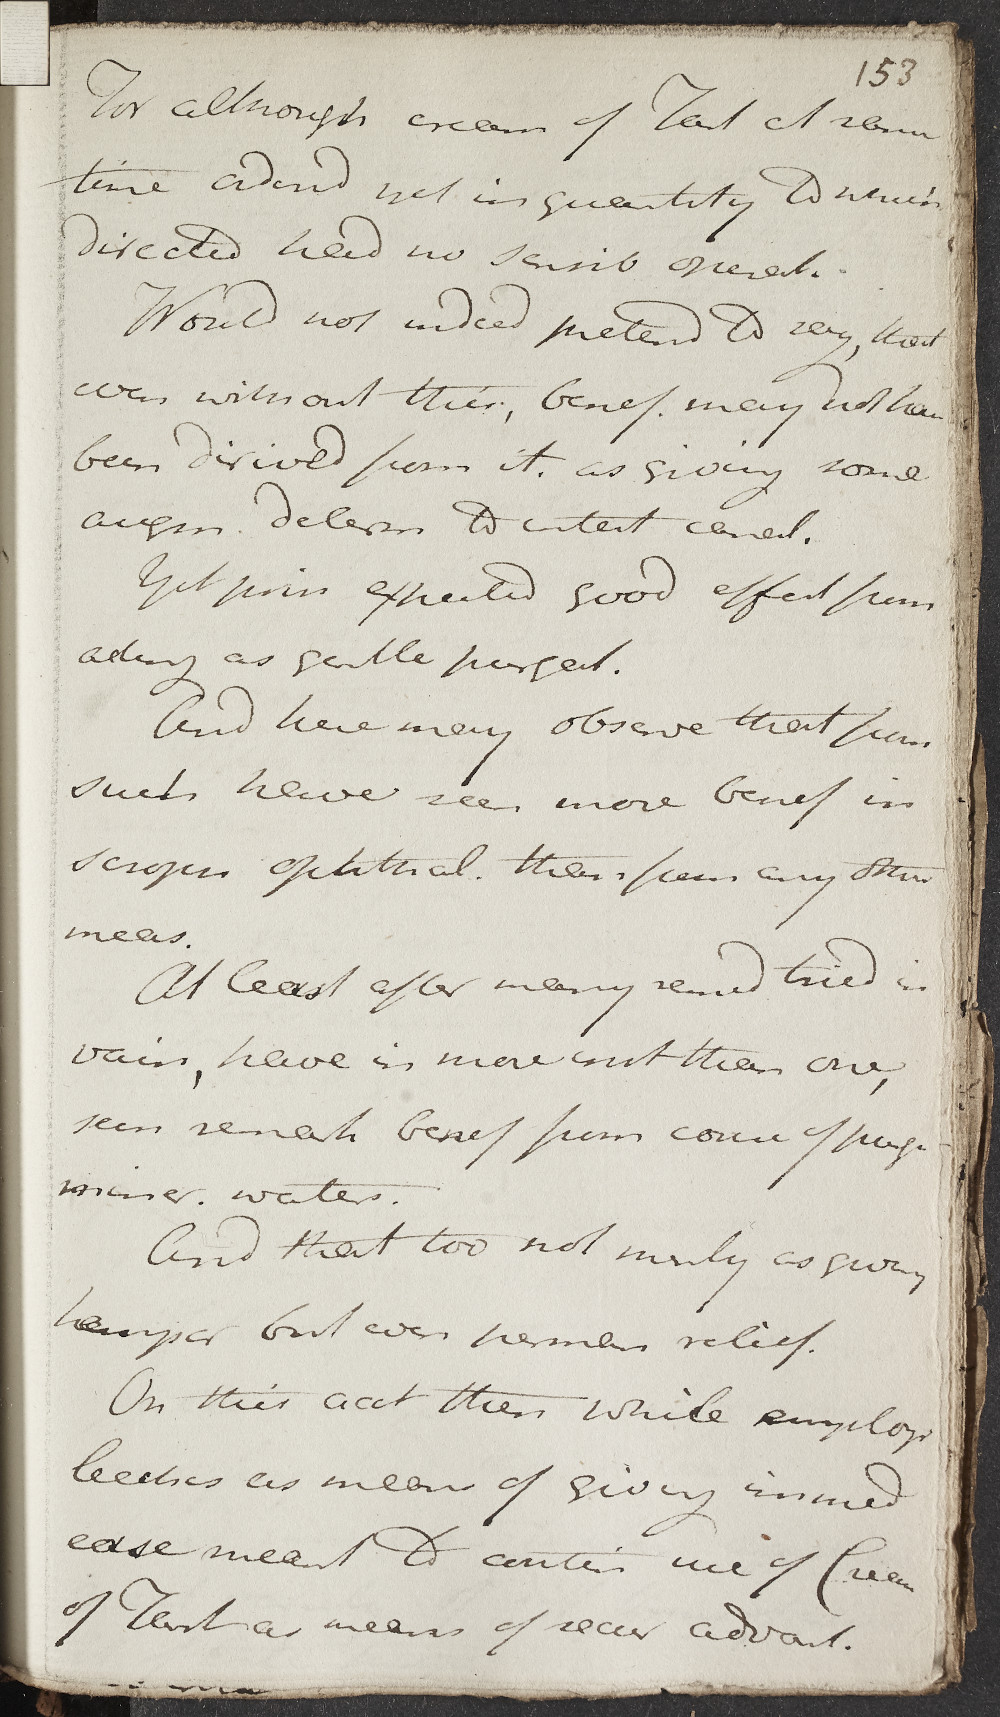 153
For although cream of Tart at same
time advis'd yet in quantity to which
directed had no sensib operat.
Would not indeed pretend to say, that
even without this, benef. may not have
been dirived from it. as giving some
augm. determ to intest canal.
Yet prin expected good effect from
acting as gentle purgat.
And here may observe that from
such have seen more benef in
scroph ophthal. than from any other
meas.
At least after many remed tried in
vain, have in more inst than one,
seen remark benef from course of purg
miner. waters.
And that too not merly as giving
tempor but even perman relief.
On this acct then while employ
leeches as means of giving immed
ease meant to contin use of Cream
of Tart as means of secur advant.